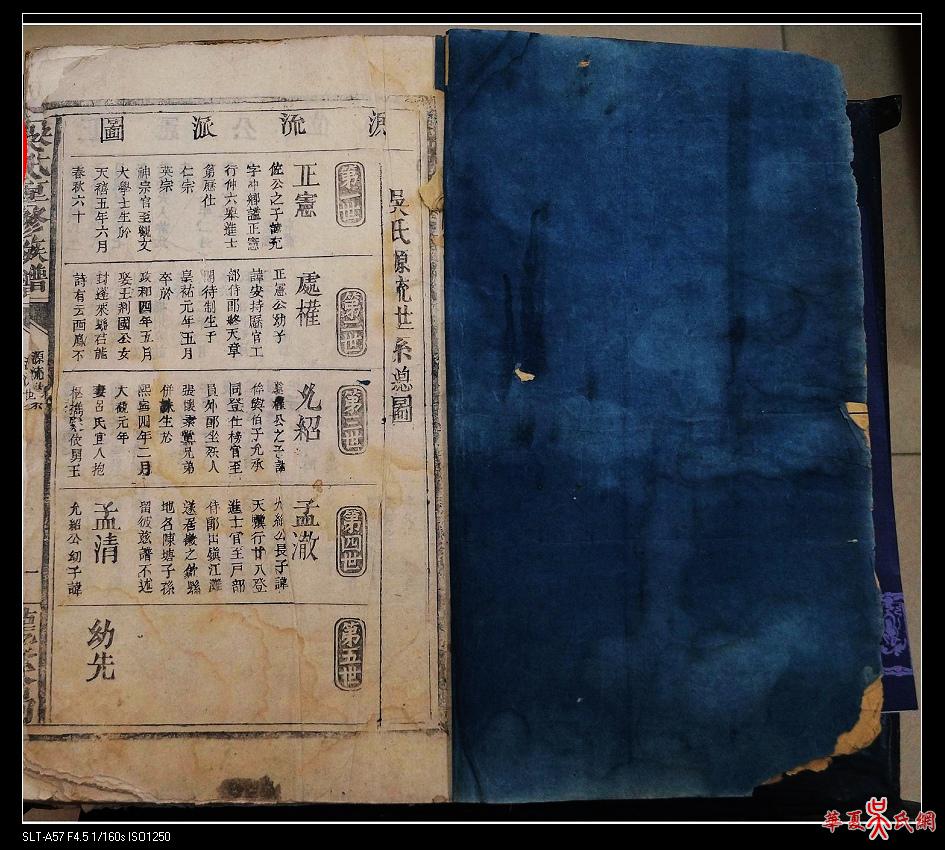 源流派圖
吳氏源流世系總圖
第一世
正憲
佐公之子諱充
字冲卿謚正憲
行仲六舉進士
第歷仕
仁宗
英宗
神宗官至觀文
大學士生於
天禧五年六月
春秋六十
第二世
處權
正憲公幼子
諱安持歷官工
部侍郎終天章
閣待制生于
皇祐元年五月
卒於
政和四年五月
娶王荆國公女
封蓬萊縣君能
詩有云西風不
第三世
允紹
處權公之子諱
侔與伯子允承
同登仕榜官至
員外郎坐族人
張懷素黨兄弟
併誅生於
熙寧四年二月
大觀元年
妻呂氏宜人抱
攸男王
第四世
孟澈
允紹公長子諱
天驥行廿八登
進士官至戸部
侍郎出嶺江灘
遂居徽之歙縣
地名陳塘子孫
留彼兹譜不述
孟清
允紹公幼子諱
第五世
幼先
吳氏重修族譜
源流
一
華夏吳氏網
SLT-A57 F4.5 1/160s ISO1250